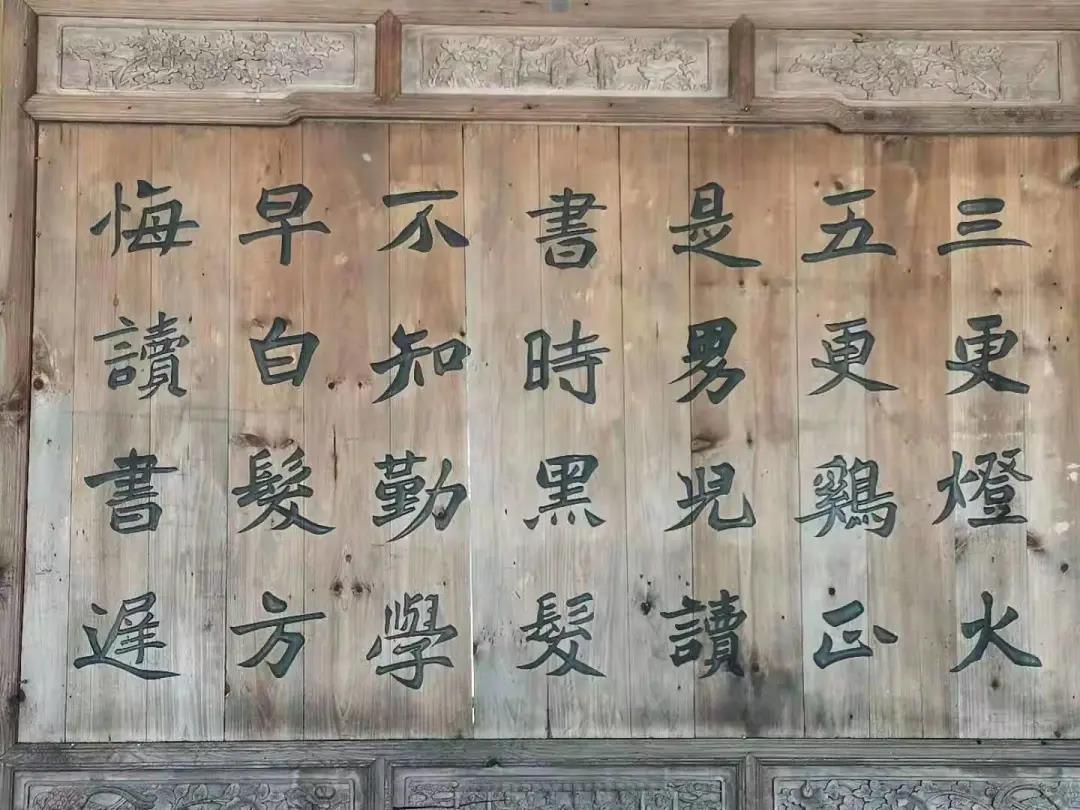 三更燈火
五更鷄正
是男児讀
書時黑髮
不知勤學
早白髮方
悔讀書遲